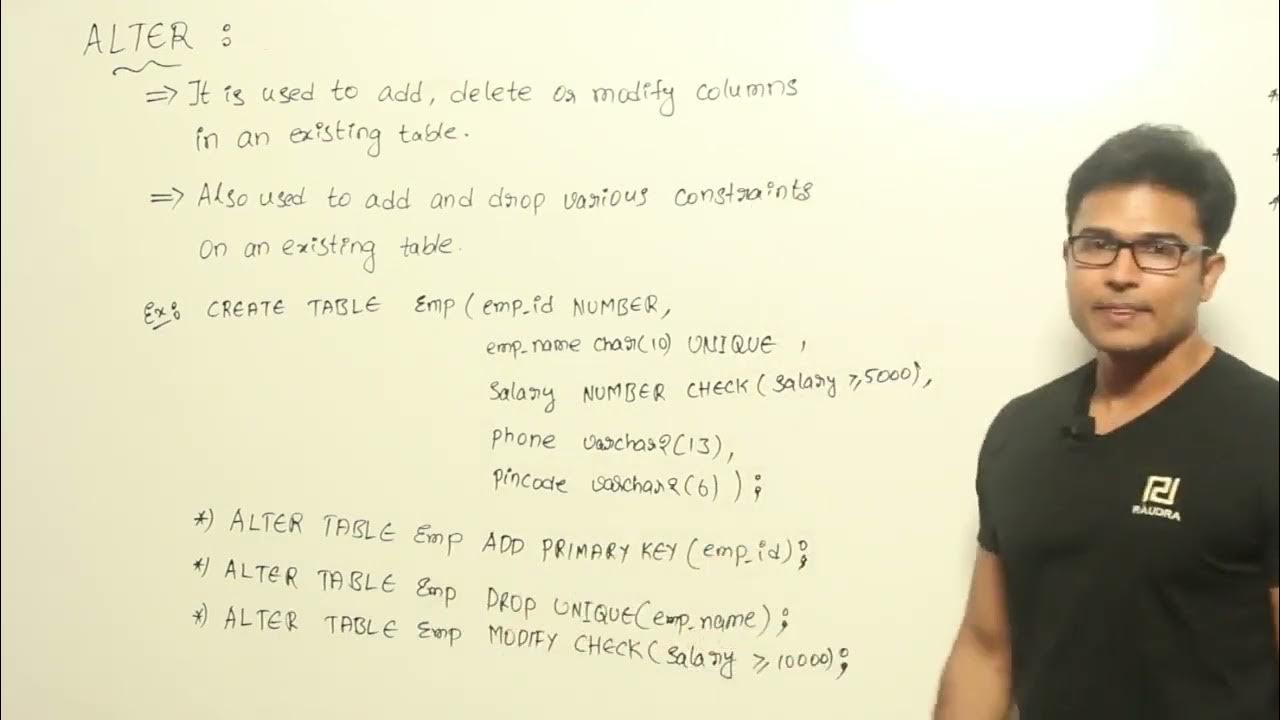 ALTER :
⇒ It is used to add, delete or modify columns
in an existing table.
⇒ Also used to add and drop various constraints
on an existing table.
Ex: CREATE TABLE Emp (emp_id NUMBER,
emp_name char(10) UNIQUE ,
Salary NUMBER CHECK (Salary ≥5000),
phone varchar2(13),
Pincode varchar2(6) );
*) ALTER TABLE Emp ADD PRIMARY KEY (emp_id);
*) ALTER TABLE Emp DROP UNIQUE(emp_name);
*) ALTER TABLE Emp MODIFY CHECK (Salary ≥ 10000);
RAUDRA